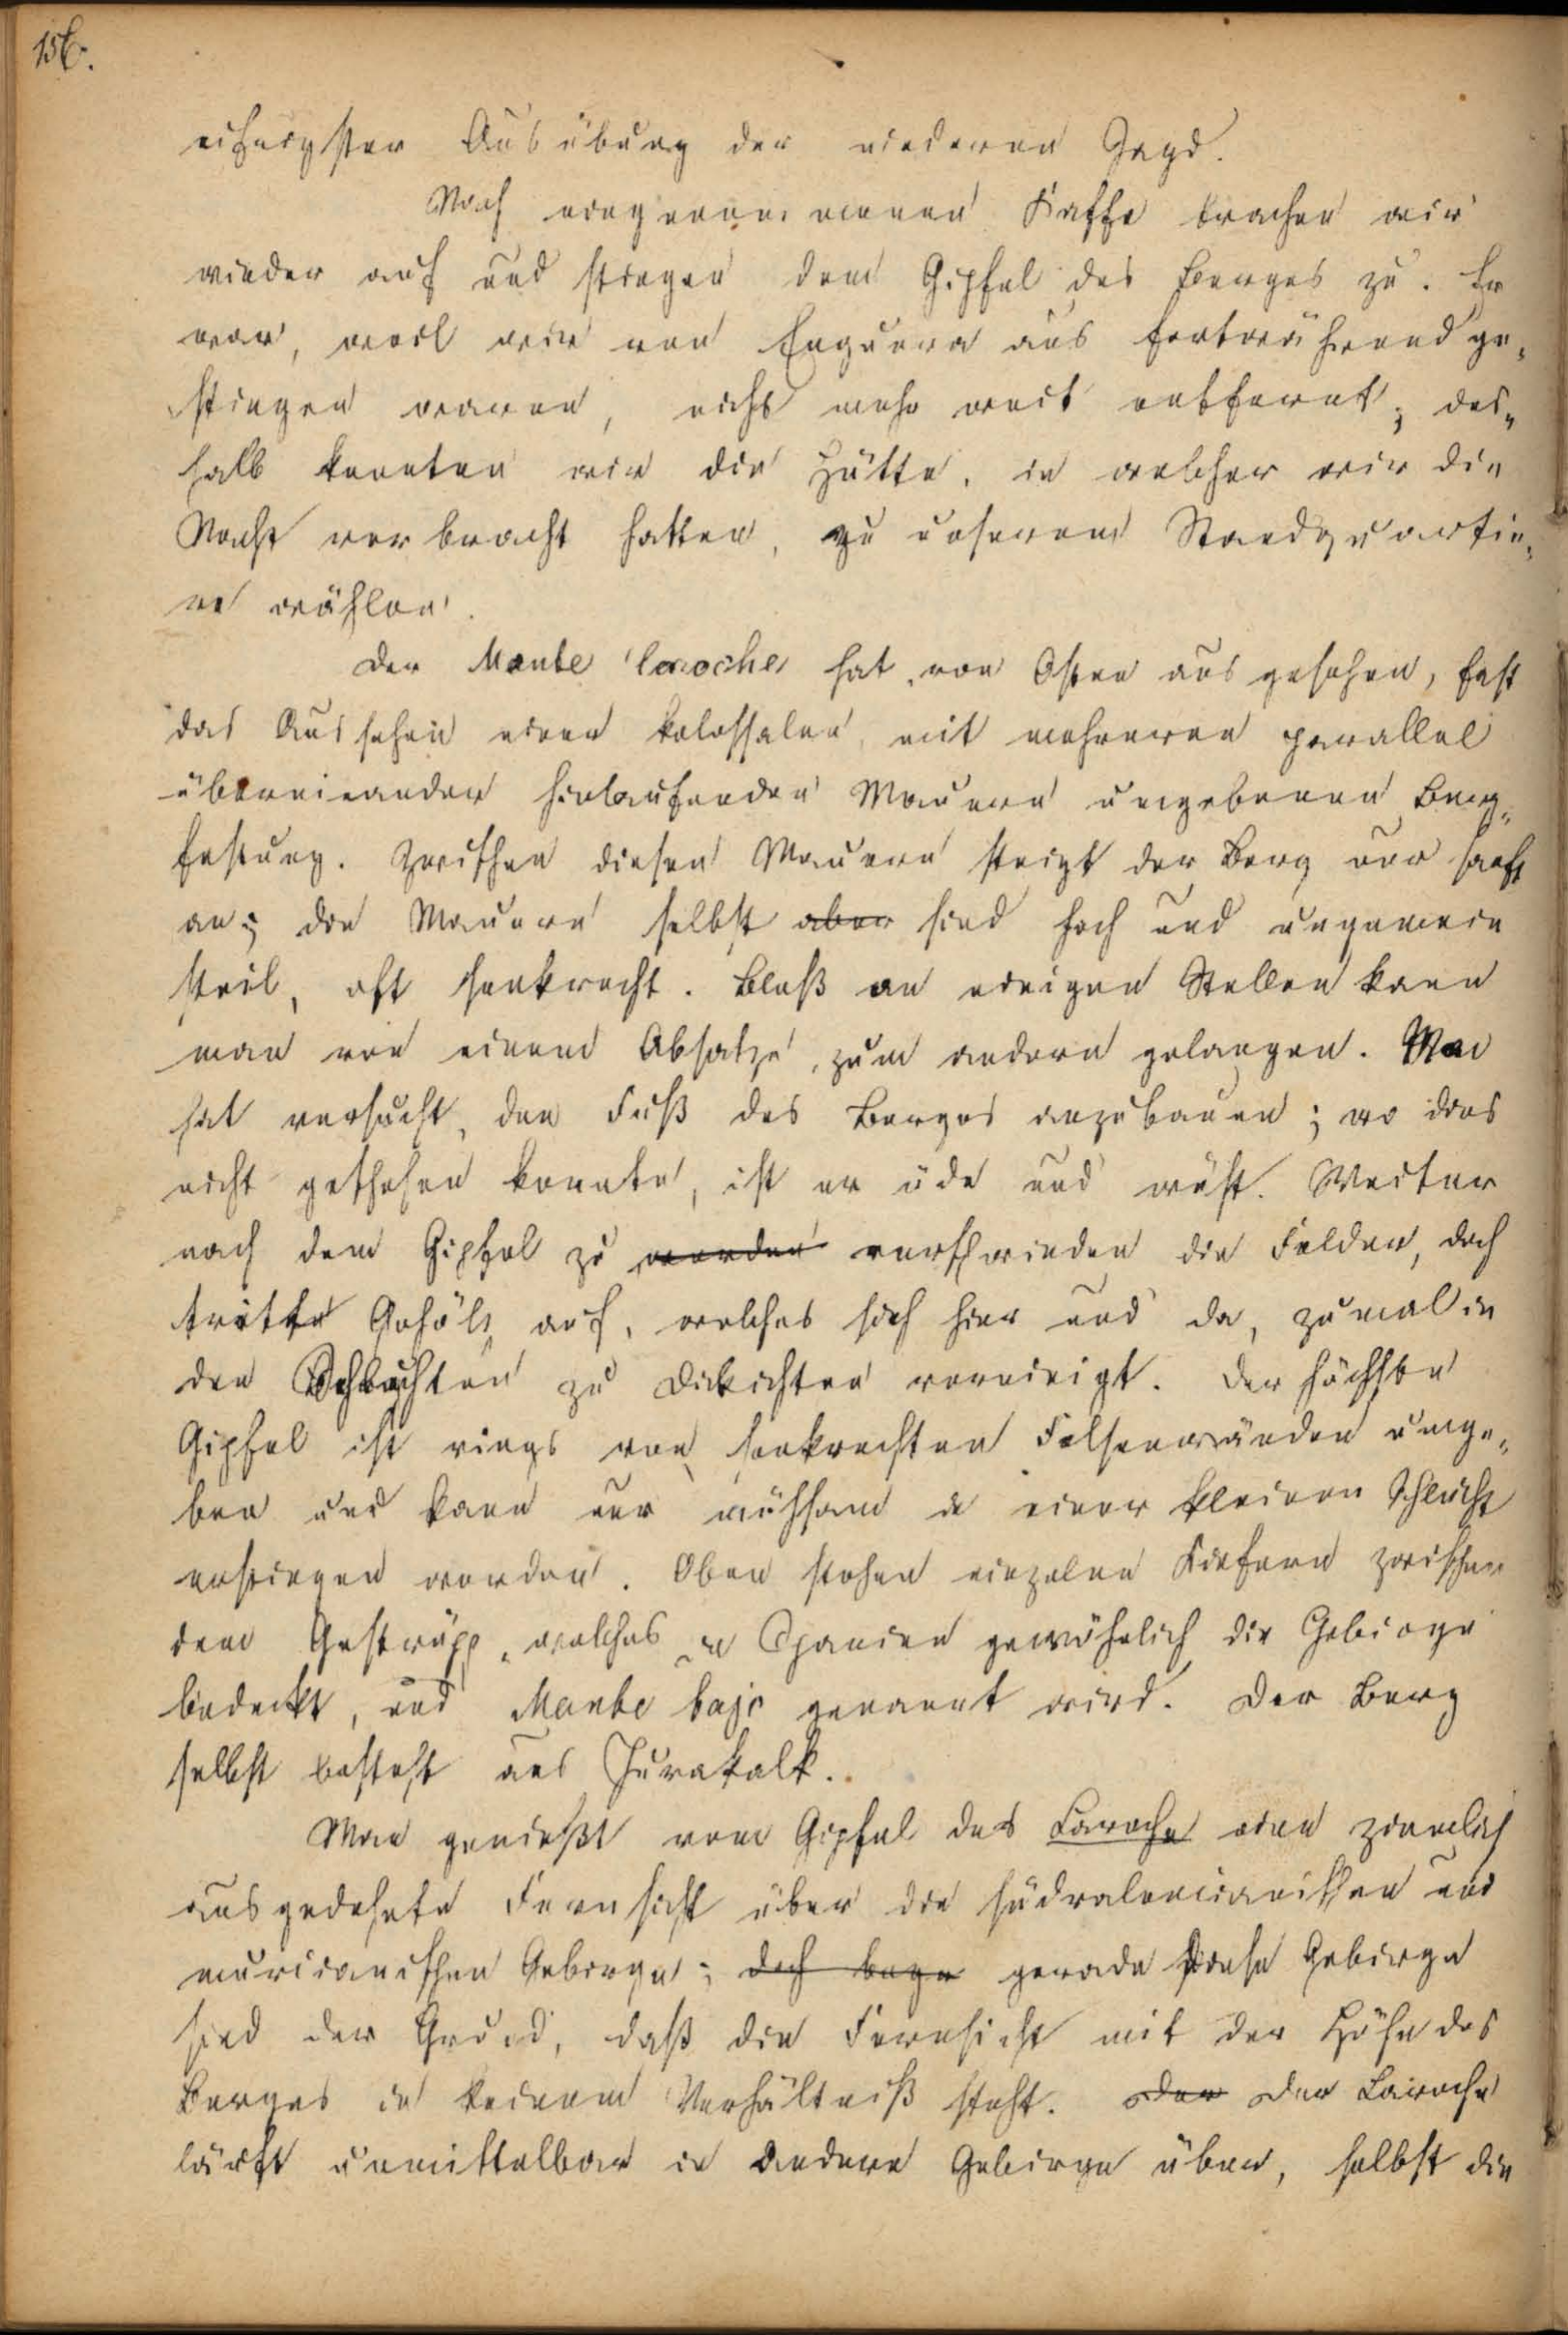 156.
eifrigster Ausübung der niederen Jagd.
Nach eingenommenen Kaffe brachen wir
wieder auf und stiegen dem Gipfel des Berges zu. Er
war, weil wir von Enguera aus fortwährend ge„
stiegen waren, nicht mehr weit entfernt; des„
halb konnten wir die Hütte, in welcher wir die
Nacht verbracht hatten, zu unserem Standquartie„
re wählen.
Der Monte Caroche hat, von Osten aus gesehen, fast
das Aussehen einer kolossalen, mit mehreren parallel
übereinander hinlaufenden Mauern umgebenen Berg„
festung. Zwischen diesen Mauern steigt der Berg nur sanft
an; die Mauern selbst aber sind hoch und ungemein
steil, oft senkrecht. Bloß an einigen Stellen kann
man von einem Absatze, zum andern gelangen. Man
hat versucht, den Fuß des Berges anzubauen; wo dies
nicht geschehen konnte, ist er öde und wüst. Weiter
nach dem Gipfel zu werden verschwinden die Felder, doch
tritt Gehölz auf, welches sich hier und da, zumal in
den Schluchten zu Dickichten vereinigt. Der höchste
Gipfel ist rings von senkrechten Felsenwänden umge„
ben und kann nur mühsam in einer kleinen Schlucht
erstiegen werden. Oben stehen einzelne Kiefern zwischen
dem Gestrüpp, welches in Spanien gewöhnlich die Gebirge
bedeckt, und Monte bajo genannt wird. Der Berg
selbst besteht aus Jurakalk.
Man genießt vom Gipfel des Caroche eine ziemlich
ausgedehnte Fernsicht über die südvalencianischen und
murcianischen Gebirge; doch gerade diese Gebirge
sind der Grund, daß die Fernsicht mit der Höhe des
Berges in keinem Verhältniß steht. Der Der Caroche
läuft unmittelbar in andere Gebirge über, selbst die